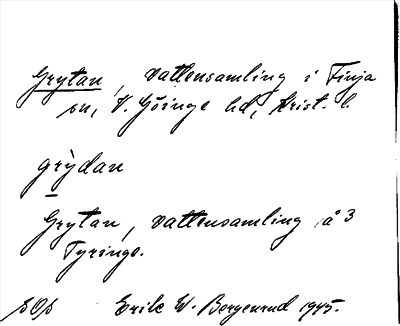 Grytan, vattensamling i Finja
sn, V. Göinge hd, Krist. l.
grỳdan
Grytan, vattensamling å 3
Tyringe.
Erik W. Bergenrud 1945.